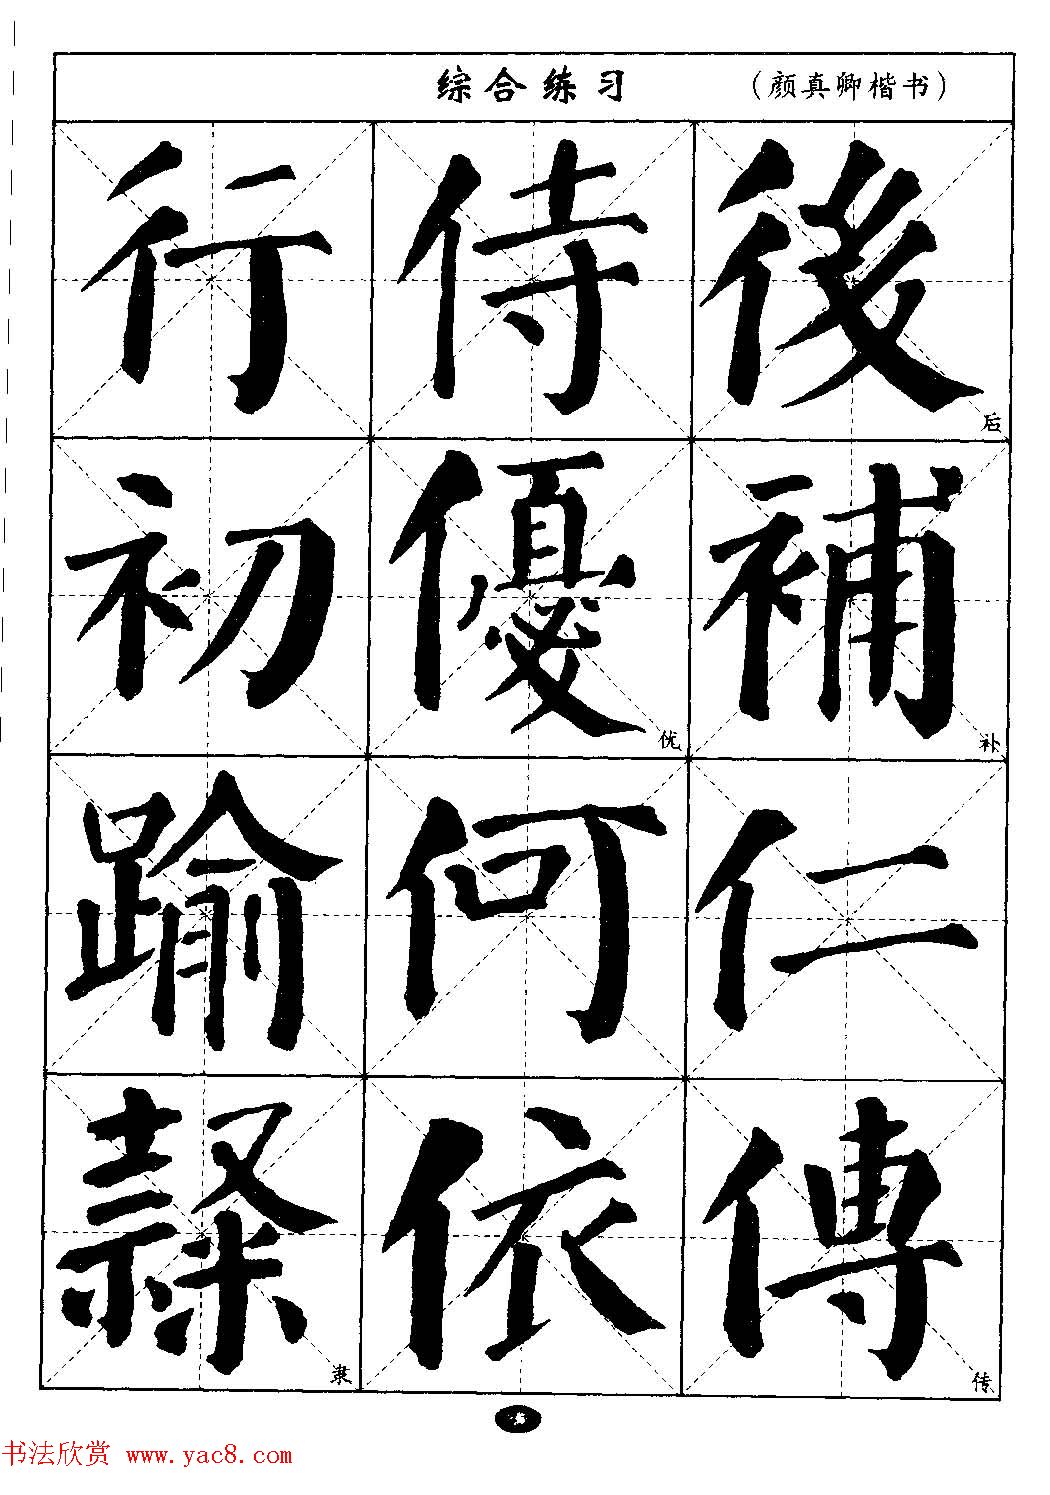 综合练习 （颜真卿楷书）
行 侍 後 后
初 優 优 補 补
踰 何 仁
隸 隶 依 傳 传
书法欣赏 www.yac8.com